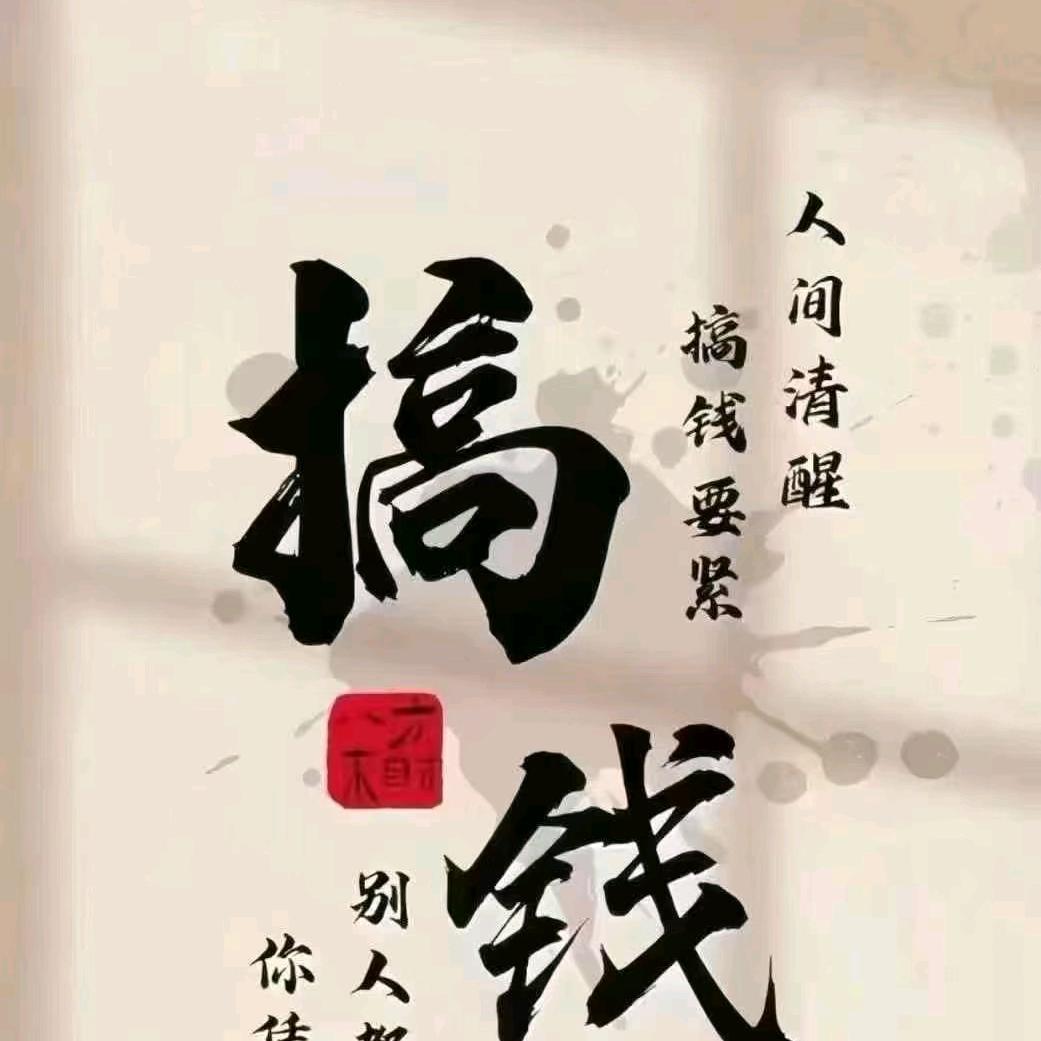 人间清醒
搞钱要紧
搞钱
别人都
你凭